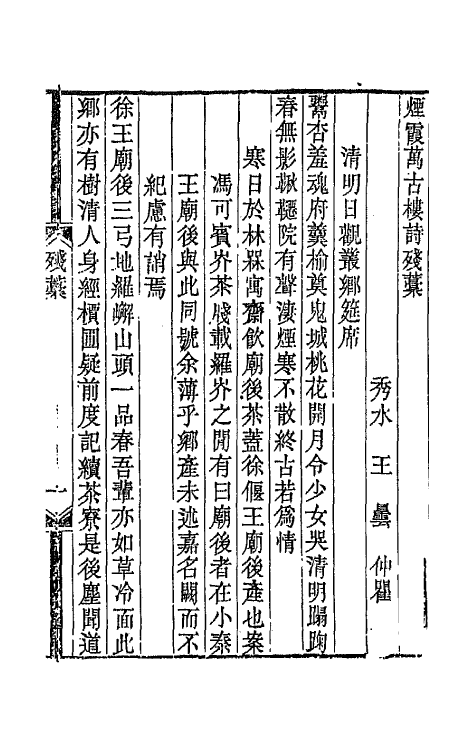 煙霞萬古樓詩殘藁
秀水 王 曇 仲瞿
清明日觀叢鄉筵席
鬻杏羞魂府羹榆奠鬼城桃花開月令少女哭清明蹋踘
春無影鞦韆院有聲淒煙寒不散終古若爲情
寒日於林槑寓齋飲廟後茶蓋徐偃王廟後產也案
馮可賓岕茶牋載羅岕之閒有曰廟後者在小秦
王廟後與此同號余薄乎鄉產未述嘉名闕而不
紀慮有誚焉
徐王廟後三弓地羅嶰山頭一品春吾輩亦如草冷面此
鄉亦有樹清人身經檟圃疑前度記續茶寮是後塵聞道
殘藁
一